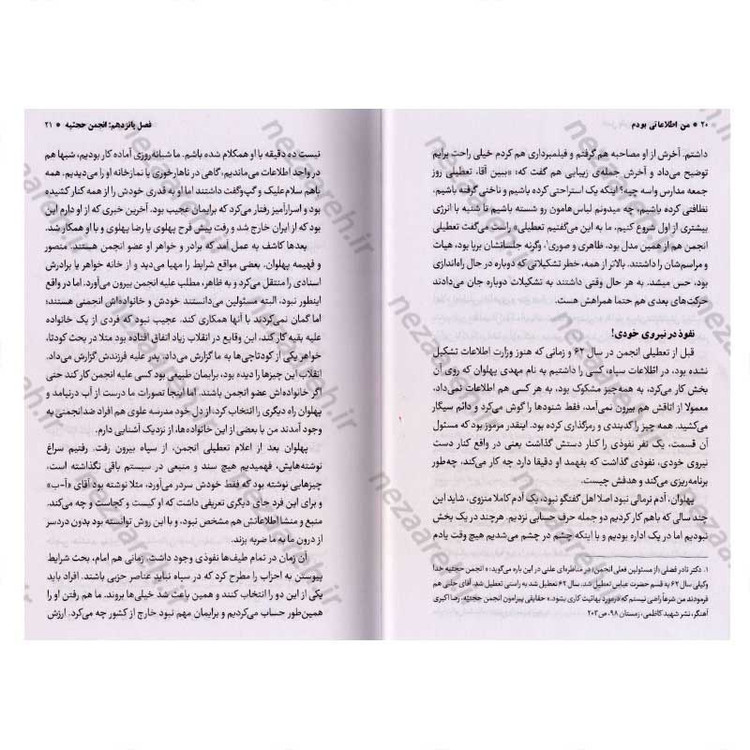 ۲۰ ● من اطلاعاتی بودم
داشتم. آخرش از او مصاحبه هم گرفتم و فیلمبرداری هم کردم خیلی راحت برایم
توضیح می‌داد و آخرش جمله‌ی زیبایی هم گفت که: «ببین آقا، تعطیلی روز
جمعه مدارس واسه چیه؟ اینکه یک استراحتی کرده باشیم و ناختی گرفته باشیم،
نظافتی کرده باشیم، چه میدونم لباس‌هامون رو شسته باشیم تا شنبه با انرژی
بیشتری از اول شروع کنیم، ما به این می‌گفتیم تعطیلی» راست می‌گفت تعطیلی
انجمن هم از همین مدل بود. ظاهری و صوری۱، وگرنه جلساتشان برپا، هیات
و مراسم‌شان را داشتند. بالاتر از همه، خطر تشکیلاتی که دوباره در حال راه‌اندازی
بود، حس میشد. به هر حال وقتی داشتند به تشکیلات دوباره جان می‌دادند
حرکت‌های بعدی هم حتما همراهش هست.
نفوذ در نیروی خودی!
قبل از تعطیلی انجمن در سال ۶۲ و زمانی که هنوز وزارت اطلاعات تشکیل
نشده بود، در اطّلاعات سپاه، کسی را داشتیم به نام مهدی پهلوان که روی آن
بخش کار می‌کرد، به همه‌چیز مشکوک بود، به هر کسی هم اطلاعات نمی‌داد،
معمولا از اتاقش هم بیرون نمی‌آمد، فقط شنودها را گوش می‌کرد و دائم سیگار
می‌کشید. همه چیز را گدبندی و رمزگذاری کرده بود. اینقدر مرموز بود که مسئول
آن قسمت، یک نفر نفوذی را کنار دستش گذاشت یعنی در واقع کنار دست
نیروی خودی، نفوذی گذاشت که بفهمد او دقیقا دارد چه کار می‌کند، چه‌طور
برنامه‌ریزی می‌کند و هدفش چیست.
پهلوان، آدم نرمالی نبود اصلا اهل گفتگو نبود، یک آدم کاملا منزوی، شاید این
چند سالی که باهم کار کردیم دو جمله حرف حسابی نزدیم. هرچند در یک بخش
نبودیم اما در یک اداره بودیم و با اینکه چشم در چشم می‌شدیم هیچ وقت یادم
۱. دکتر نادر فضلی (از مسئولین فعلی انجمن)، در مناظره‌ای علنی در این باره می‌گوید: « انجمن حجتیه خدا
وکیلی سال ۶۲ به قسم حضرت عباس تعطیل شد. سال ۶۲ تعطیل شد به راستی تعطیل شد. آقای حلبی هم
فرمودند من شرعاً راضی نیستم که درمورد بهائیت کاری بشود.» حقایقی پیرامون انجمن حجتیه، رضا اکبری
آهنگر، نشر شهید کاظمی، زمستان ۹۸، ص ۲۰۳
فصل پانزدهم: انجمن حجتیه ● ۲۱
نیست ده دقیقه با او همکلام شده باشم. ما شبانه‌روزی آماده کار بودیم، شبها هم
در واحد اطلاعات می‌ماندیم، گاهی در ناهارخوری یا نمازخانه او را می‌دیدیم. همه
باهم سلام‌علیک و گپ‌وگفت داشتند اما او به قدری خودش را از همه کنار کشیده
بود و اسرارآمیز رفتار می‌کرد که برایمان عجیب بود. آخرین خبری که از او دارم این
بود که از ایران خارج شد و رفت پیش فرح پهلوی یا رضا پهلوی و با او همکار شد.
بعدها کاشف به عمل آمد که برادر و خواهر او عضو انجمن هستند. منصور
و فهیمه پهلوان. بعضی مواقع شرایط را مهیا می‌دید و از خانه خواهر یا برادرش
اسنادی را منتقل می‌کرد و به ظاهر، مطلب علیه انجمن بیرون می‌آورد. اما در واقع
اینطور نبود. البته مسئولین می‌دانستند خودش و خانواده‌اش انجمنی هستند؛
اما گمان نمی‌کردند با آنها همکاری کند. عجیب نبود که فردی از یک خانواده
علیه بقیه کار کند، این وقایع در انقلاب زیاد اتفاق افتاده بود مثلا در بحث کودتا،
خواهر یکی از کودتاچی‌ها به ما گزارش می‌داد. پدر علیه فرزندش گزارش می‌داد.
انقلاب این چیزها را دیده بود، برایمان طبیعی بود کسی علیه انجمن کار کند حتی
اگر خانواده‌اش عضو انجمن باشند. اما اینجا تصورات ما درست از آب درنیامد و
پهلوان راه دیگری را انتخاب کرد، از دل خود مدرسه علوی هم افراد ضدانجمنی به
وجود آمدند من با بعضی از این خانواده‌ها، از نزدیک آشنایی دارم.
پهلوان بعد از اعلام تعطیلی انجمن، از سپاه بیرون رفت. رفتیم سراغ
نوشته‌هایش، فهمیدیم هیچ سند و منبعی در سیستم باقی نگذاشته است،
چیزهایی نوشته بود که فقط خودش سردر می‌آورد. مثلا نوشته بود آقای «آ-ب»
و برای این فرد جای دیگری تعریفی داشت که او کیست و کجاست و چه می‌کند.
منبع و منشا اطلاعاتش هم مشخص نبود، و با این روش توانسته بود بدون دردسر
از درون ما به ما ضربه بزند.
آن زمان در تمام طیف‌ها نفوذی وجود داشت. زمانی هم امام، بحث شرایط
پیوستن به احزاب را مطرح کرد که در سپاه نباید عناصر حزبی باشند. افراد باید
یکی از این دو را انتخاب کنند و همین باعث شد خیلی‌ها بروند. ما هم رفتن او را
همین‌طور حساب می‌کردیم و برایمان مهم نبود خارج از کشور چه می‌کرد. ارزش
nezaareh.ir